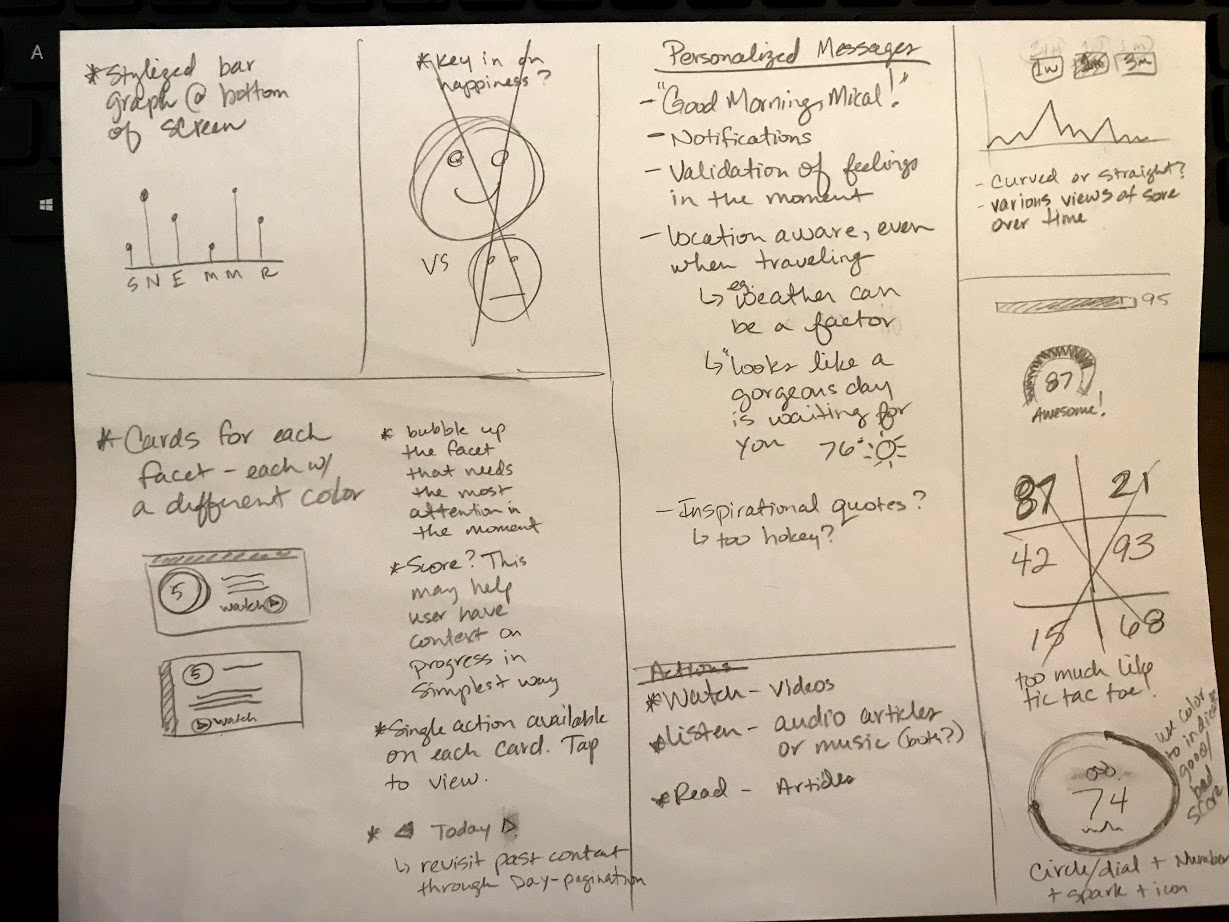 A
*Stylized bar
graph @ bottom
of screen
S N E M M R
*Key in on
happiness?
VS
Personalized Messages
- "Good Morning, Mikal!"
- Notifications
- Validation of feelings
in the moment
- location aware, even
when traveling
↳ eg weather can
be a factor
↳ "looks like a
gorgeous day
is waiting for
you 76°
- Inspirational quotes?
↳ too hokey?
1w 3m
- curved or straight?
- various views of sore
over time
95
87
Awesome!
87 21
42 93
15 68
too much like
tic tac toe!
use color
to indicate
good/
bad
score
74
Circle/dial + Number
+ spark + icon
* Cards for each
facet - each w/
a different color
5
watch
5
watch
* bubble up
the facet
that needs
the most
attention in
the moment
*Score? This
may help
user have
context on
progress in
simplest way
*Single action available
on each card. Tap
to view.
* Today
↳ revisit past content
through Day-pagination
Actions
*Watch - videos
*Listen - audio articles
or music (both?)
*Read - Articles